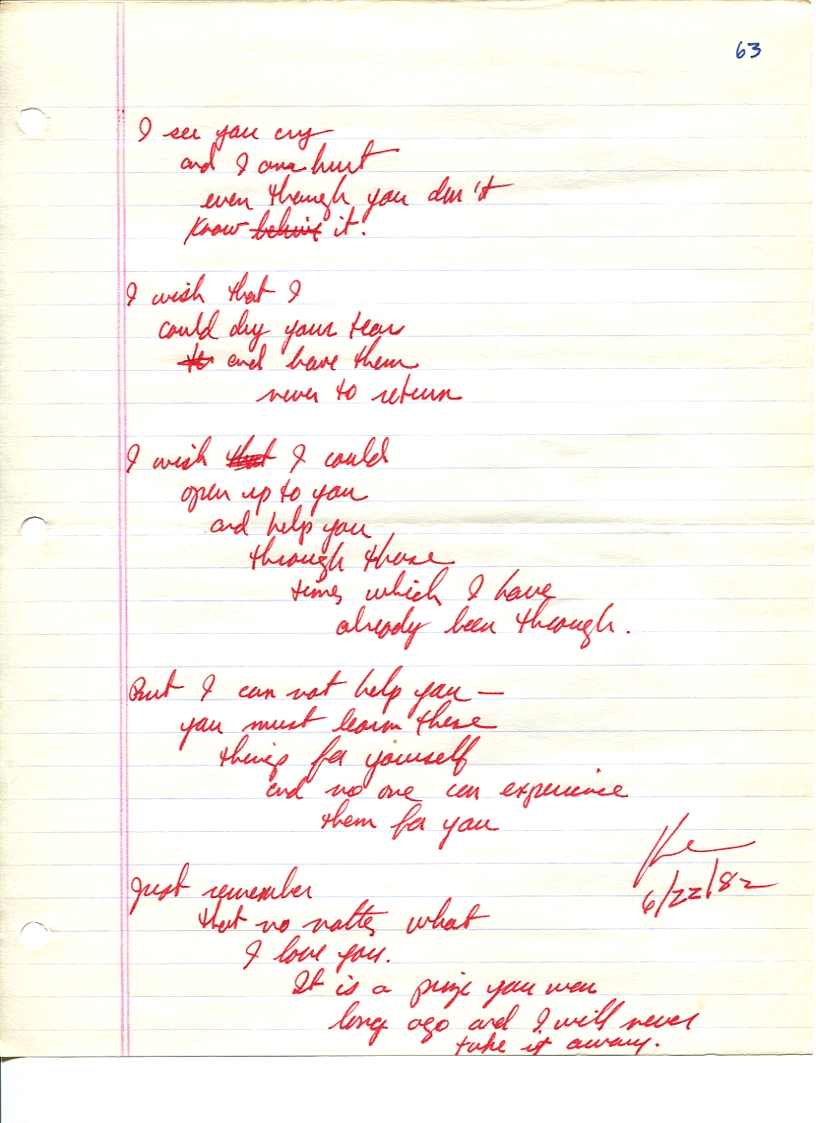 63
I see you cry
and I am hurt
even though you don't
know it.
I wish that I
could dry your tear
and have them
never to return
I wish that I could
open up to you
and help you
through those
times which I have
already been through.
But I can not help you —
you must learn these
things for yourself
and no one can experience
them for you
6/22/82
Just remember
that no matter what
I love you.
It is a prize you won
long ago and I will never
take it away.